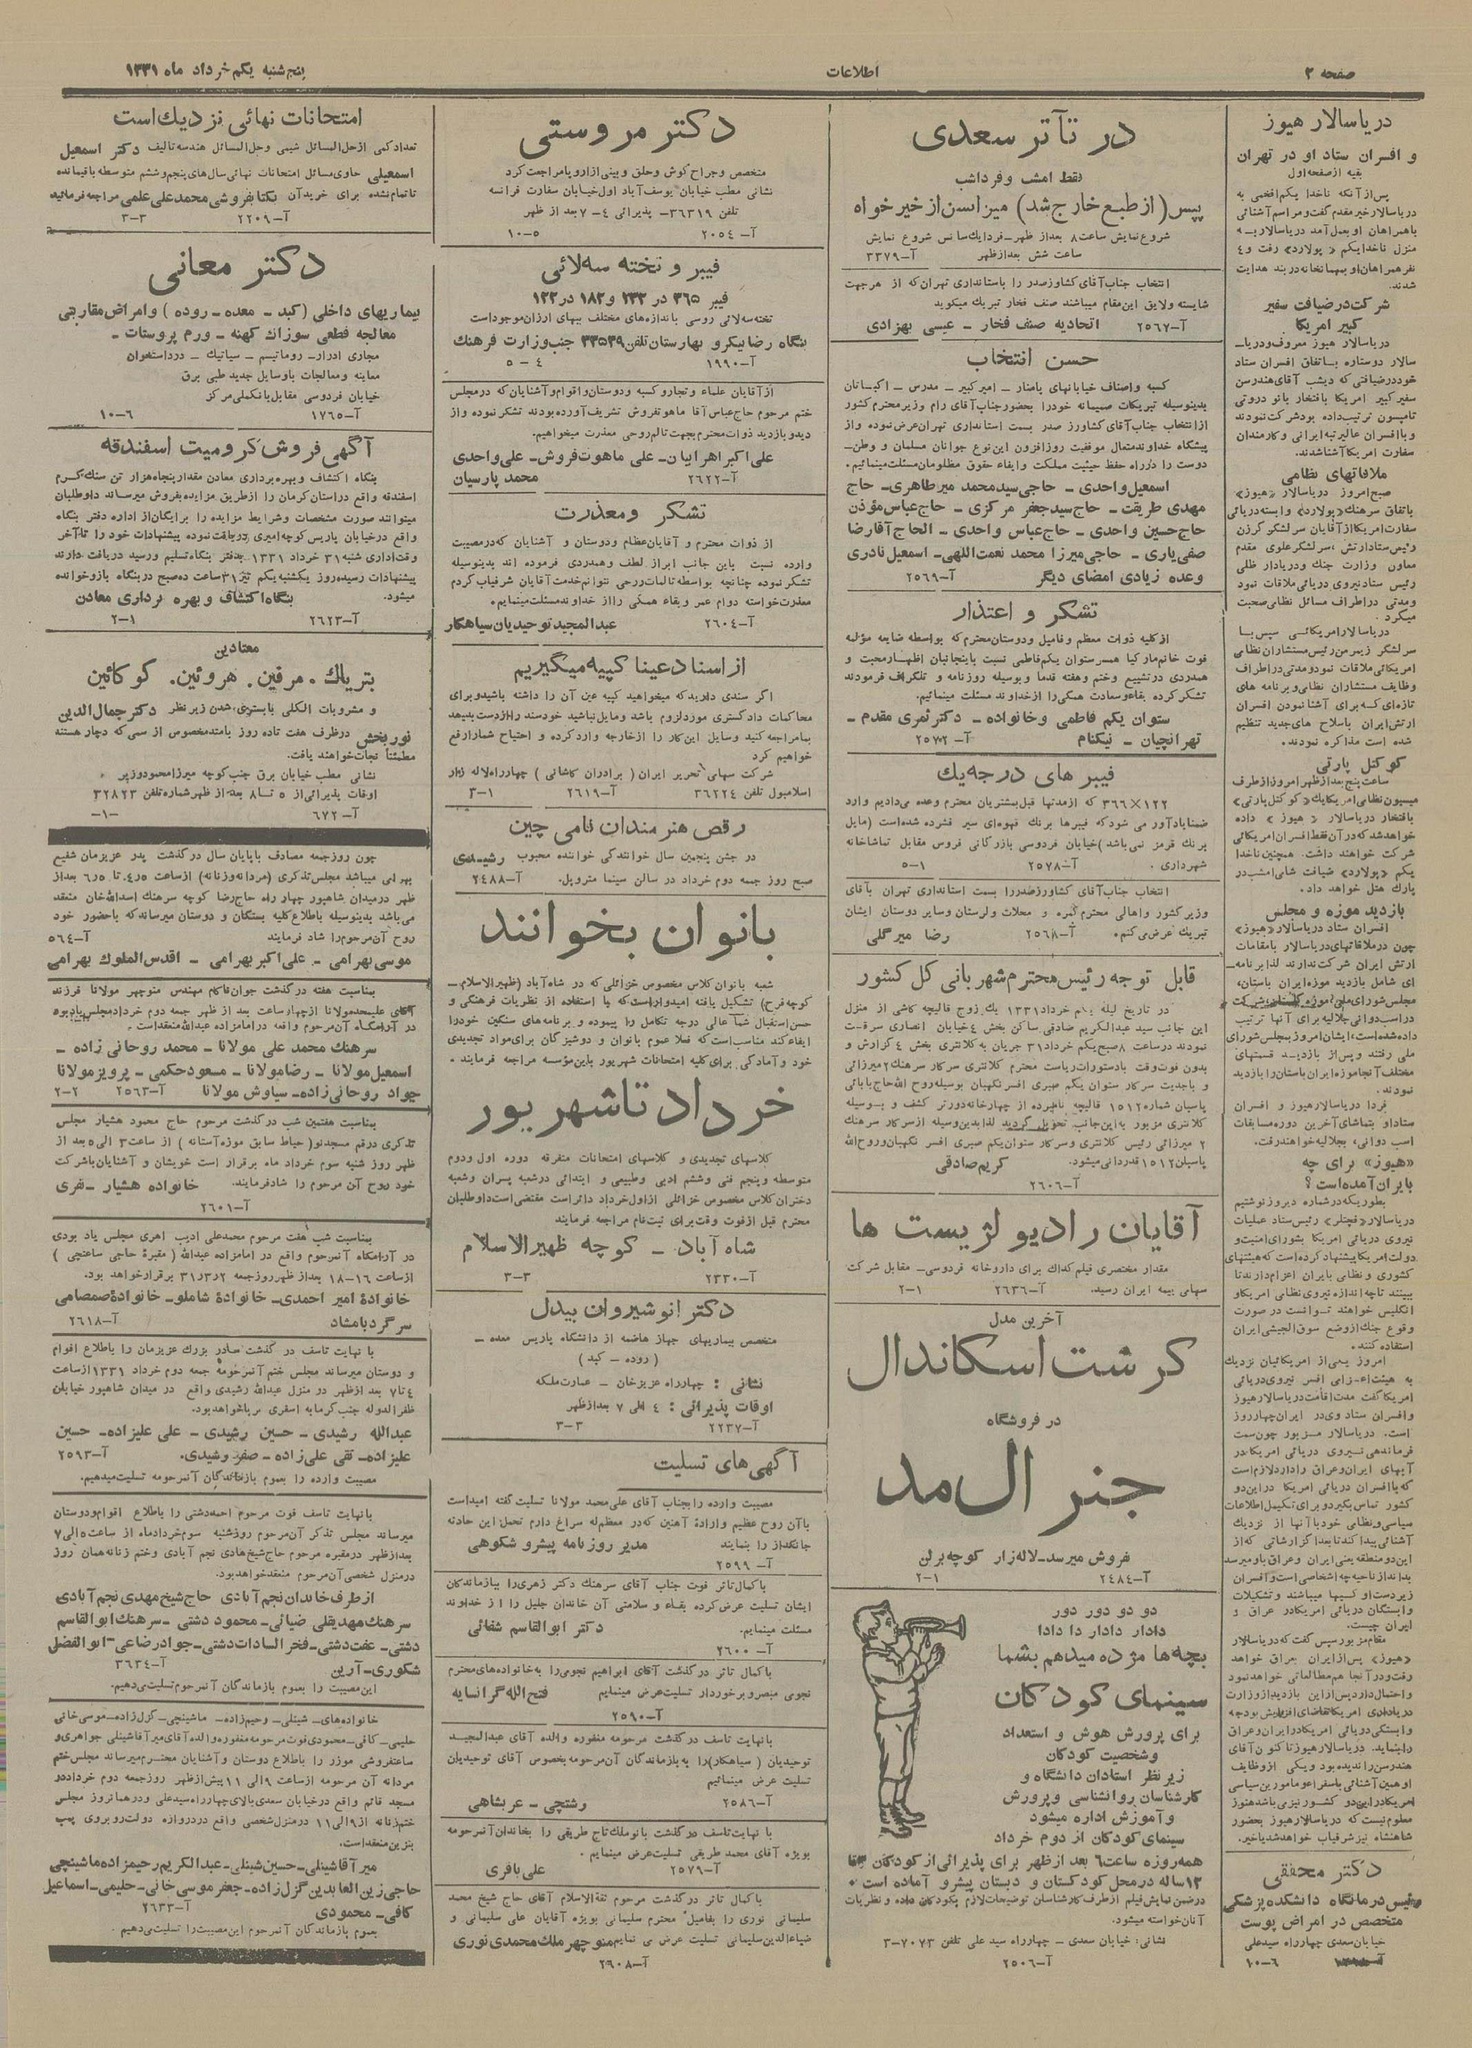 صفحه ۲
اطلاعات
پنج‌شنبه یکم خرداد ماه ۱۳۳۱
دریاسالار هیوز
و افسران ستاد او در تهران
بقیه از صفحه اول
پس از آنکه ناخدا یکم افخمی به
دریاسالار خیر مقدم گفت و مراسم آشنائی
با همراهان او بعمل آمد دریاسالار به
منزل ناخدا یکم «پولارد» رفت و ٤
نفر همراهان او بمهمانخانه دربند هدایت
شدند.
شرکت در ضیافت سفیر
کبیر امریکا
دریاسالار هیوز معروف و دریا-
سالار دوستاره باتفاق افسران ستاد
خود در ضیافتی که دیشب آقای هندرسن
سفیر کبیر امریکا بافتخار بانو دروتی
تامپسون ترتیب داده بود شرکت نمودند
و با افسران عالیرتبه ایرانی و کارمندان
سفارت امریکا آشنا شدند.
ملاقاتهای نظامی
صبح امروز دریاسالار «هیوز»
باتفاق سرهنگ «پولارد» وابسته دریائی
سفارت امریکا از آقایان سرلشگر گرزن
رئیس ستاد ارتش، سرلشگر علوی مقدم
معاون وزارت جنگ و دریادار ظلی
رئیس ستاد نیروی دریائی ملاقات نمود
و مدتی در اطراف مسائل نظامی صحبت
میکرد.
دریاسالار امریکائی سپس با
سرلشگر زیمرمن رئیس مستشاران نظامی
امریکائی ملاقات نمود و مدتی در اطراف
وظایف مستشاران نظامی و برنامه های
تازه‌ای که برای آشنا نمودن افسران
ارتش ایران باسلاح های جدید تنظیم
شده است مذاکره نمودند.
کوکتل پارتی
ساعت پنج بعد از ظهر امروز از طرف
میسیون نظامی امریکا یک «کوکتل پارتی»
بافتخار دریاسالار «هیوز» داده
خواهد شد که در آن فقط افسران امریکائی
شرکت خواهند داشت. همچنین ناخدا
یکم «پولارد» ضیافت شامی امشب در
پارک هتل خواهد داد.
بازدید موزه و مجلس
افسران ستاد دریاسالار «هیوز»
چون در ملاقاتهای دریاسالار بامقامات
ارتش ایران شرکت ندارند لذا برنامه-
ای شامل بازدید موزه ایران باستان،
مجلس شورای ملی، موزه گلستان، شرکت
در اسب دوانی جلالیه برای آنها ترتیب
داده شده است، ایشان امروز بمجلس شورای
ملی رفتند و پس از بازدید قسمتهای
مختلف آنجا موزه ایران باستان را بازدید
نمودند.
فردا دریاسالار هیوز و افسران
ستاد او بتماشای آخرین دوره مسابقات
اسب دوانی، بجلالیه خواهند رفت.
«هیوز» برای چه
بایران آمده است؟
بطوریکه در شماره دیروز نوشتیم
دریاسالار «فچتلر» رئیس ستاد عملیات
نیروی دریائی امریکا بشورای امنیت و
دولت امریکا پیشنهاد کرده است که هیئتهای
کشوری و نظامی بایران اعزام دارند تا
ببینند تا چه اندازه نیروی نظامی امریکا و
انگلیس خواهند توانست در صورت
وقوع جنگ از وضع سوق الجیشی ایران
استفاده کنند.
امروز یکی از امریکائیان نزدیک
به هیئت اعزامی افسر نیروی دریائی
امریکا گفت مدت اقامت دریاسالار هیوز
و افسران ستاد وی در ایران چهار روز
است. دریاسالار مزبور چون سمت
فرماندهی نیروی دریائی امریکا در
آبهای ایران و عراق را دارد لازم است
که با افسران دریائی امریکا در این دو
کشور تماس بگیرد و برای تکمیل اطلاعات
سیاسی و نظامی خود با آنها از نزدیک
آشنائی پیدا کند تا بعد گزارشاتی که از
این دو منطقه یعنی ایران و عراق باو میرسد
بداند از ناحیه چه اشخاصی است و افسران
زیردست او کی‌ها میباشند و تشکیلات
وابستگان دریائی امریکا در عراق و
ایران چیست.
مقام مزبور سپس گفت که دریاسالار
«هیوز» پس از ایران بعراق خواهد
رفت و در آنجا هم مطالعاتی خواهد نمود
و احتمال دارد پس از این بازدید از وزارت
دریاداری امریکا تقاضای افزایش بودجه
وابستگی دریائی امریکا در ایران و عراق
را بنماید. دریاسالار هیوز تاکنون آقای
هندرسن را ندیده بود و یکی از وظایف
او همین آشنائی با سفرا و مامورین سیاسی
امریکا در این دو کشور نیز می باشد هنوز
معلوم نیست که دریاسالار هیوز بحضور
شاهنشاه نیز شرفیاب خواهد شد یا خیر.
دکتر محققی
رئیس درمانگاه دانشکده پزشکی
متخصص در امراض پوست
خیابان سعدی چهارراه سیدعلی
۶-۱۰
در تآتر سعدی
فقط امشب و فرداشب
پیس (از طبع خارج شد) میزانسن از خیرخواه
شروع نمایش ساعت ۸ بعد از ظهر - فردا یک سانس شروع نمایش
ساعت شش بعد از ظهر آ-۳۳۷۹
انتخاب جناب آقای کشاورز صدر را باستانداری تهران که از هر جهت
شایسته و لایق این مقام میباشند صنف فخار تبریک میگوید
آ-۲۵۶۷ اتحادیه صنف فخار - عیسی بهزادی
حسن انتخاب
کسبه و اصناف خیابانهای پامنار - امیرکبیر - مدرس - اکباتان
بدینوسیله تبریکات صمیمانه خود را بحضور جناب آقای رام وزیر محترم کشور
از انتخاب جناب آقای کشاورز صدر بسمت استانداری تهران عرض نموده و از
پیشگاه خداوند متعال موفقیت روزافزون این نوع جوانان مسلمان و وطن-
دوست را در راه حفظ حیثیت مملکت و ایفاء حقوق مظلومان مسئلت مینمائیم.
اسمعیل واحدی - حاجی سید محمد میرطاهری - حاج
مهدی طریقت - حاج سید جعفر مرکزی - حاج عباس مؤذن
حاج حسین واحدی - حاج عباس واحدی - الحاج آقا رضا
صفی یاری - حاجی میرزا محمد نعمت اللهی - اسمعیل نادری
وعده زیادی امضای دیگر آ-۲۵۶۹
تشکر و اعتذار
از کلیه ذوات معظم و فامیل و دوستان محترم که بواسطه ضایعه مؤلمه
فوت خانم مارکیا همسر ستوان یکم فاطمی نسبت باینجانبان اظهار محبت و
همدردی در تشییع و ختم و هفته قدما و بوسیله روزنامه و تلگراف فرمودند
تشکر کرده بقاء و سعادت همگی را از خداوند مسئلت مینمائیم.
ستوان یکم فاطمی و خانواده - دکتر ثمری مقدم -
تهرانچیان - نیکنام آ-۲۵۷۰۲
فیبر های درجه یک
۱۲۲×۳۶۶ که از مدتها قبل بمشتریان محترم وعده میدادیم وارد
ضمنا یادآور می شود که فیبرها برنگ قهوه‌ای سیر فشرده شده است (مایل
برنگ قرمز نمی باشد) خیابان فردوسی بازرگانی فروس مقابل تماشاخانه
شهرداری. آ-۲۵۷۸ ۱-۵
انتخاب جناب آقای کشاورز صدر را بسمت استانداری تهران بآقای
وزیر کشور و اهالی محترم کمره و محلات و لرستان و سایر دوستان ایشان
تبریک عرض می کنم. آ-۲۵۶۸ رضا میرگلی
قابل توجه رئیس محترم شهربانی کل کشور
در تاریخ لیله یکم خرداد ۱۳۳۱ یک زوج قالیچه کاشی از منزل
این جانب سید عبدالکریم صادقی ساکن بخش ٤ خیابان انصاری سرقت
نمودند در ساعت ۸ صبح یکم خرداد ۳۱ جریان به کلانتری بخش ٤ گزارش و
بدون فوت وقت بادستورات ریاست محترم کلانتری سرکار سرهنگ ۲ میرزائی
و باجدیت سرکار ستوان یکم صبری افسر نگهبان بوسیله روح الله حاج بابائی
پاسبان شماره ۱۵۱۲ قالیچه نامبرده از چهارخانه دورتر کشف و بوسیله
کلانتری مزبور به این جانب تحویل گردید لذا بدین وسیله از سرکار سرهنگ
۲ میرزائی رئیس کلانتری و سرکار ستوان یکم صبری افسر نگهبان و روح الله
پاسبان ۱۵۱۲ قدردانی میشود. کریم صادقی
آ-۲۶۰۶
آقایان رادیولژیست ها
مقدار مختصری فیلم کداک برای داروخانه فردوسی - مقابل شرکت
سهامی بیمه ایران رسید. آ-۲۶۳۶ ۱-۲
آخرین مدل
کرشت اسکاندال
در فروشگاه
جنرال مد
بفروش میرسد - لاله زار کوچه برلن
آ-۲۴۸۴ ۱-۲
دو دو دور دور
دادار دادار دا دادا
بچه‌ها مژده میدهم بشما
سینمای کودکان
برای پرورش هوش و استعداد
و شخصیت کودکان
زیر نظر استادان دانشگاه و
کارشناسان روانشناسی و پرورش
و آموزش اداره میشود
سینمای کودکان از دوم خرداد
همه روزه ساعت ۶ بعد از ظهر برای پذیرائی از کودکان ۴ تا
۱۲ ساله در محل کودکستان و دبستان پیشرو آماده است
در ضمن نمایش فیلم از طرف کارشناسان توضیحات لازم بکودکان داده و نظریات
آنان خواسته میشود.
نشانی: خیابان سعدی - چهارراه سید علی تلفن ۷۰۷۳-۳
آ-۲۵۰۶
دکتر مروستی
متخصص و جراح گوش و حلق و بینی از اروپا مراجعت کرد
نشانی مطب خیابان یوسف آباد اول خیابان سفارت فرانسه
تلفن ۳۶۳۱۹ - پذیرائی ٤-۷ بعد از ظهر
آ-۲۰۵٤ ۵-۱۰
فیبر و تخته سه‌لائی
فیبر ۳۶۵ در ۱۲۲ و ۱۸۲ در ۱۲۲
تخته سه‌لائی روسی باندازه‌های مختلف ببهای ارزان موجود است
بنگاه رضا نیکرو بهارستان تلفن ۳۳۵۳۹ جنب وزارت فرهنگ
آ-۱۹۹۰ ٤-۵
از آقایان علماء و تجار و کسبه و دوستان و اقوام و آشنایان که در مجلس
ختم مرحوم حاج عباس آقا ماهوتفروش تشریف آورده بودند تشکر نموده و از
دید و بازدید ذوات محترم بجهت تالم روحی معذرت میخواهیم.
علی اکبر اهرابیان - علی ماهوت فروش - علی واحدی
آ-۲۶۲۲ محمد پارسیان
تشکر و معذرت
از ذوات محترم و آقایان عظام و دوستان و آشنایان که در مصیبت
وارده نسبت باین جانب ابراز لطف و همدردی فرموده اند بدینوسیله
تشکر نموده چنانچه بواسطه تالمات روحی نتوانم خدمت آقایان شرفیاب گردم
معذرت خواسته دوام عمر و بقاء همگی را از خداوند مسئلت مینمایم.
آ-۲۶۰٤ عبدالمجید توحیدیان سیاهکار
از اسناد عینا کپیه میگیریم
اگر سندی دارید که میخواهید کپیه عین آن را داشته باشید و برای
محاکمات دادگستری مورد لزوم باشد و مایل نباشید خود سند را از دست بدهید
بما مراجعه کنید وسایل این کار را از خارجه وارد کرده و احتیاج شما را رفع
خواهیم کرد
شرکت سهامی تحریر ایران (برادران کاشانی) چهارراه لاله زار
اسلامبول تلفن ۳۶۲۲٤ آ-۲۶۱۹ ۱-۳
رقص هنرمندان نامی چین
در جشن پنجمین سال خوانندگی خواننده محبوب رشیدی
صبح روز جمعه دوم خرداد در سالن سینما متروپل. آ-۲٤۸۸
بانوان بخوانند
شعبه بانوان کلاس مخصوص خزائلی که در شاه‌آباد (ظهیرالاسلام -
کوچه فرح) تشکیل یافته امیدوار است که با استفاده از نظریات فرهنگی و
حسن استقبال شما عالی درجه تکامل را پیموده و برنامه‌های سنگین خود را
ایفاء کند مناسب است که فعلا عموم بانوان و دوشیزگان برای مواد تجدیدی
خود و آمادگی برای کلیه امتحانات شهریور باین مؤسسه مراجعه فرمایند.
خرداد تا شهریور
کلاسهای تجدیدی و کلاسهای امتحانات متفرقه دوره اول و دوم
متوسطه و پنجم فنی و ششم ادبی و طبیعی و ابتدائی در شعبه پسران و شعبه
دختران کلاس مخصوص خزائلی از اول خرداد دائر است مقتضی است داوطلبان
محترم قبل از فوت وقت برای ثبت نام مراجعه فرمایند
شاه آباد - کوچه ظهیرالاسلام
آ-۲۳۳۰ ۳-۳
دکتر انوشیروان بیدل
متخصص بیماریهای جهاز هاضمه از دانشگاه پاریس معده -
(روده - کبد)
نشانی: چهارراه عزیزخان - عمارت ملکه
اوقات پذیرائی: ٤ الی ۷ بعد از ظهر
آ-۲۲۳۷ ۳-۳
آگهی‌های تسلیت
مصیبت وارده را بجناب آقای علی محمد مولانا تسلیت گفته امید است
با آن روح عظیم و ارادهٔ آهنین که در معظم‌له سراغ دارم تحمل این حادثه
جانگداز را بنمایند مدیر روزنامه پیشرو شکوهی
آ-۲۵۹۹
با کمال تاثر فوت جناب آقای سرهنگ دکتر زهری را ببازماندگان
ایشان تسلیت عرض کرده بقاء و سلامتی آن خاندان جلیل را از خداوند
مسئلت مینمایم. دکتر ابوالقاسم شفائی
آ-۲۶۰۰
با کمال تاثر درگذشت آقای ابراهیم نجومی را به خانواده‌های محترم
نجومی مبصر و برخوردار تسلیت عرض مینمایم فتح‌الله گرانسایه
آ-۲۵۹۰
با نهایت تاسف درگذشت مرحومه مغفوره والده آقای عبدالمجید
توحیدیان (سیاهکار) را به بازماندگان آن مرحومه بخصوص آقای توحیدیان
تسلیت عرض مینمائیم
آ-۲۵۸۶ رشتچی - عربشاهی
با نهایت تاسف درگذشت بانو ملک تاج طریقی را بخاندان آنمرحومه
بویژه آقای محمد طریقی تسلیت عرض مینمایم.
آ-۲۵۷۹ علی باقری
با کمال تاثر درگذشت مرحوم ثقةالاسلام آقای حاج شیخ محمد
سلیمانی نوری را بفامیل محترم سلیمانی بویژه آقایان علی سلیمانی و
ضیاءالدین سلیمانی تسلیت عرض می نمایم منوچهر ملک محمدی نوری
آ-۲۶۰۸
امتحانات نهائی نزدیک است
تعداد کمی از حل المسائل شیمی و حل المسائل هندسه تالیف دکتر اسمعیل
اسمعیلی حاوی مسائل امتحانات نهائی سال های پنجم و ششم متوسطه باقیمانده
تا تمام نشده برای خرید آن بکتابفروشی محمد علی علمی مراجعه فرمائید
آ-۲۲۰۹ ۳-۳
دکتر معانی
بیماریهای داخلی (کبد - معده - روده) و امراض مقاربتی
معالجه قطعی سوزاک کهنه - ورم پروستات -
مجاری ادرار - روماتیسم - سیاتیک - درد استخوان
معاینه و معالجات باوسایل جدید طبی برق
خیابان فردوسی مقابل بانک ملی مرکز
آ-۱۷۶۵ ۶-۱۰
آگهی فروش کرومیت اسفندقه
بنگاه اکتشاف و بهره برداری معادن مقدار پنجاه هزار تن سنگ کرم
اسفندقه واقع در استان کرمان را از طریق مزایده بفروش میرساند داوطلبان
میتوانند صورت مشخصات و شرایط مزایده را برایگان از اداره دفتر بنگاه
واقع در خیابان پاریس کوچه امیری دریافت نموده پیشنهادات خود را تا آخر
وقت اداری شنبه ۳۱ خرداد ۱۳۳۱ بدفتر بنگاه تسلیم و رسید دریافت دارند
پیشنهادات رسیده روز یکشنبه یکم تیر ۳۱ ساعت ده صبح در بنگاه باز و خوانده
میشود. بنگاه اکتشاف و بهره برداری معادن
آ-۲۶۲۳ ۱-۲
معتادین
بتریاک. مرفین. هروئین. کوکائین
و مشروبات الکلی بابستری شدن زیر نظر دکتر جمال‌الدین
نوربخش در ظرف هفت تا ده روز با متد مخصوص از سمی که دچار هستند
مطمئناً نجات خواهند یافت.
نشانی مطب خیابان برق جنب کوچه میرزا محمود وزیر
اوقات پذیرائی از ۵ تا ۸ بعد از ظهر شماره تلفن ۳۲۸۲۳
آ-۶۷۲ -۱-
چون روز جمعه مصادف با پایان سال درگذشت پدر عزیزمان شفیع
بهرامی میباشد مجلس تذکری (مردانه و زنانه) از ساعت ٤٫۵ تا ۶٫۵ بعد از
ظهر در میدان شاهپور چهار راه حاج رضا کوچه سرهنگ اسدالله خان منعقد
می باشد بدینوسیله باطلاع کلیه بستگان و دوستان میرساند که باحضور خود
روح آن مرحوم را شاد فرمایند آ-۵۶٤
موسی بهرامی - علی اکبر بهرامی - اقدس الملوک بهرامی
بمناسبت هفته درگذشت جوان ناکام مهندس منوچهر مولانا فرزند
آقای علیمحمد مولانا از چهار ساعت بعد از ظهر جمعه دوم خرداد مجلس یادبود
در آرامگاه آن مرحوم واقعه در امامزاده عبدالله منعقد است.
سرهنگ محمد علی مولانا - محمد روحانی زاده -
اسمعیل مولانا - رضا مولانا - مسعود حکمی - پرویز مولانا
جواد روحانی زاده - سیاوش مولانا آ-۲۵۶۳ ۲-۲
بمناسبت هفتمین شب درگذشت مرحوم حاج محمود هشیار مجلس
تذکری در قم مسجد نو (حیاط سابق موزه آستانه) از ساعت ۳ الی ۵ بعد از
ظهر روز شنبه سوم خرداد ماه برقرار است خویشان و آشنایان باشرکت
خود روح آن مرحوم را شاد فرمایند. خانواده هشیار - نفری
آ-۲۶۰۱
بمناسبت شب هفت مرحوم محمدعلی ادیب اهری مجلس یاد بودی
در آرامگاه آنمرحوم واقع در امامزاده عبدالله (مقبرهٔ حاجی ساعتچی)
از ساعت ۱۶-۱۸ بعد از ظهر روز جمعه ۳۱٫۳٫۲ برقرار خواهد بود.
خانوادهٔ امیر احمدی - خانوادهٔ شاملو - خانوادهٔ صمصامی
سرگرد بامشاد آ-۲۶۱۸
با نهایت تاسف درگذشت مادر بزرگ عزیزمان را باطلاع اقوام
و دوستان میرساند مجلس ختم آنمرحومه جمعه دوم خرداد ۱۳۳۱ از ساعت
٤ تا ۷ بعد از ظهر در منزل عبدالله رشیدی واقع در میدان شاهپور خیابان
ظفرالدوله جنب گرمابه اصغری برپا خواهد بود.
عبدالله رشیدی - حسین رشیدی - علی علیزاده - حسین
علیزاده - تقی علی زاده - صفر رشیدی. آ-۲۵۹۳
مصیبت وارده را بعموم بازماندگان آنمرحومه تسلیت میدهیم.
بانهایت تاسف فوت مرحوم احمد دشتی را باطلاع اقوام و دوستان
میرساند مجلس تذکر آن مرحوم روز شنبه سوم خرداد ماه از ساعت ۵ الی ۷
بعد از ظهر در مقبره مرحوم حاج شیخ هادی نجم آبادی و ختم زنانه همان روز
در منزل شخصی آن مرحوم منعقد خواهد بود.
از طرف خاندان نجم آبادی حاج شیخ مهدی نجم آبادی
سرهنگ مهدیقلی ضیائی - محمود دشتی - سرهنگ ابوالقاسم
دشتی - عفت دشتی - فخرالسادات دشتی - جواد رضاعی - ابوالفضل
شکوری - آرین آ-۳۶۳٤
این مصیبت را بعموم بازماندگان آنمرحوم تسلیت می‌دهیم.
خانواده‌های - شینلی - رحیم زاده - ماشینچی - گزل زاده - موسی خانی
حلیمی - کافی - محمودی فوت مرحومه مغفوره والده آقای میرآقا شینلی جواهری و
ساعتفروشی موزر را باطلاع دوستان و آشنایان محترم میرساند مجلس ختم
مردانه آن مرحومه از ساعت ۹ الی ۱۱ پیش از ظهر روز جمعه دوم خرداد در
مسجد قائم واقع در خیابان سعدی بالای چهارراه سیدعلی و در همانروز مجلس
ختم زنانه از ۹ الی ۱۱ در منزل شخصی واقع در دروازه دولت روبروی پمپ
بنزین منعقد است.
میرآقا شینلی - حسین شینلی - عبدالکریم رحیم زاده ماشینچی
حاجی زین العابدین گزل زاده - جعفر موسی خانی - حلیمی - اسماعیل
کافی - محمودی آ-۲۶۳۳
بعموم بازماندگان آنمرحوم این مصیبت را تسلیت می‌دهیم.